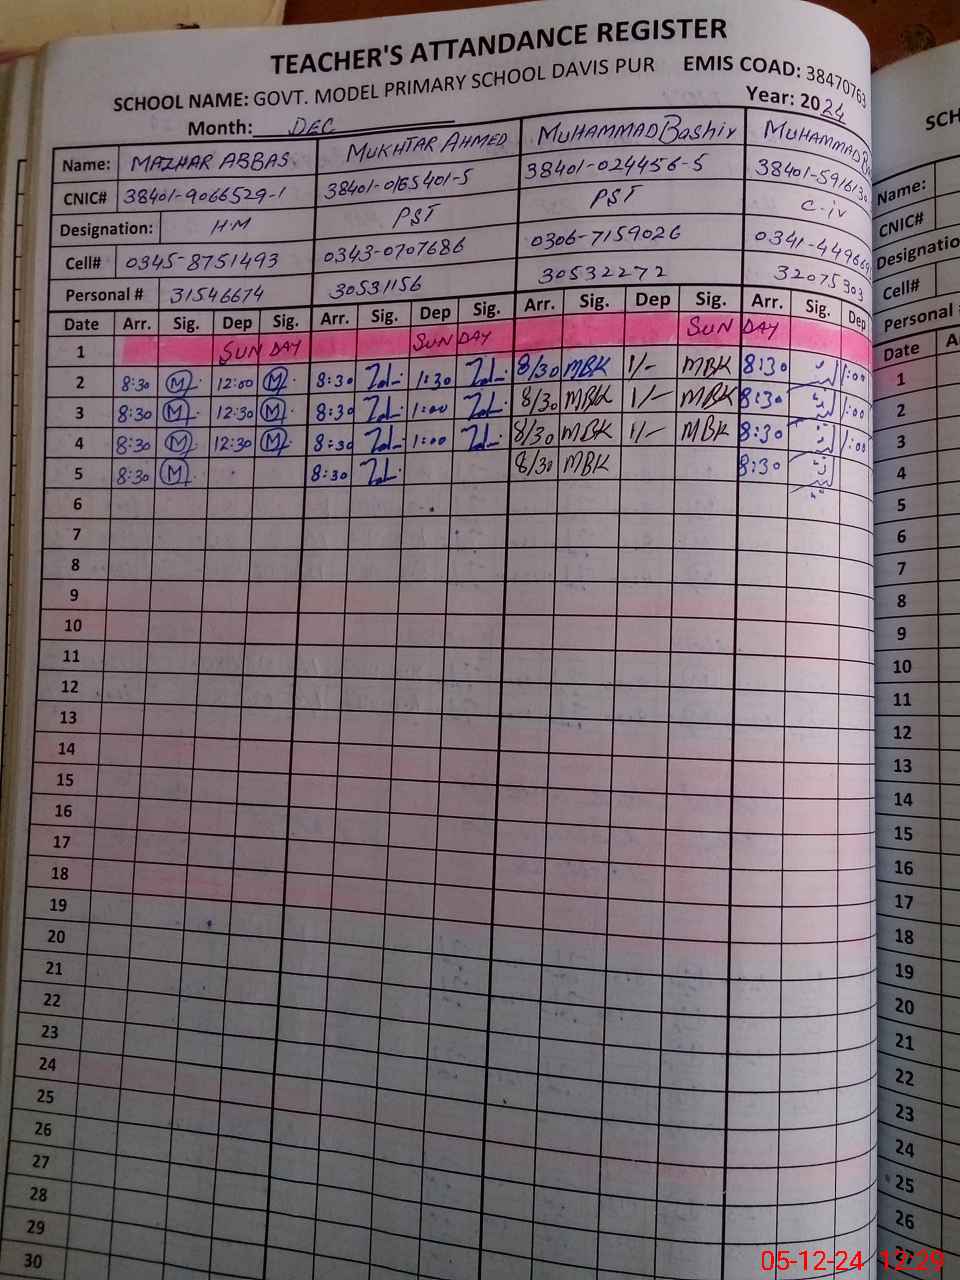 TEACHER'S ATTANDANCE REGISTER
SCHOOL NAME: GOVT. MODEL PRIMARY SCHOOL DAVIS PUR EMIS COAD: 38470763
Month: DEC Year: 2024
Name: MAZHAR ABBAS. MUKHTAR AHMED MUHAMMAD Bashir MUHAMMAD
CNIC# 38401-9066529-1 38401-0165401-5 38401-024456-5 38401-5916130
Designation: H.M PST PST C-iv
Cell# 0345-8751493 0343-0707686 0306-7159026 0341-449669
Personal # 31546674 30531156 30532272 32075303
Date Arr. Sig. Dep Sig. Arr. Sig. Dep Sig. Arr. Sig. Dep Sig. Arr. Sig. Dep
1 SUNDAY SUNDAY SUNDAY
2 8:30 M 12:00 M 8:30 1:30 8/30 MBK 1/- MBK 8:30 1:00
3 8:30 M 12:30 M 8:30 1:00 8/30 MBK 1/- MBK 8:30 1:00
4 8:30 M 12:30 M 8:30 1:00 8/30 MBK 1/- MBK 8:30 1:00
5 8:30 M 8:30 8/30 MBK 8:30
6
7
8
9
10
11
12
13
14
15
16
17
18
19
20
21
22
23
24
25
26
27
28
29
30
SCH
Name:
CNIC#
Designatio
Cell#
Personal #
Date A
1
2
3
4
5
6
7
8
9
10
11
12
13
14
15
16
17
18
19
20
21
22
23
24
25
26
05-12-24 12:29